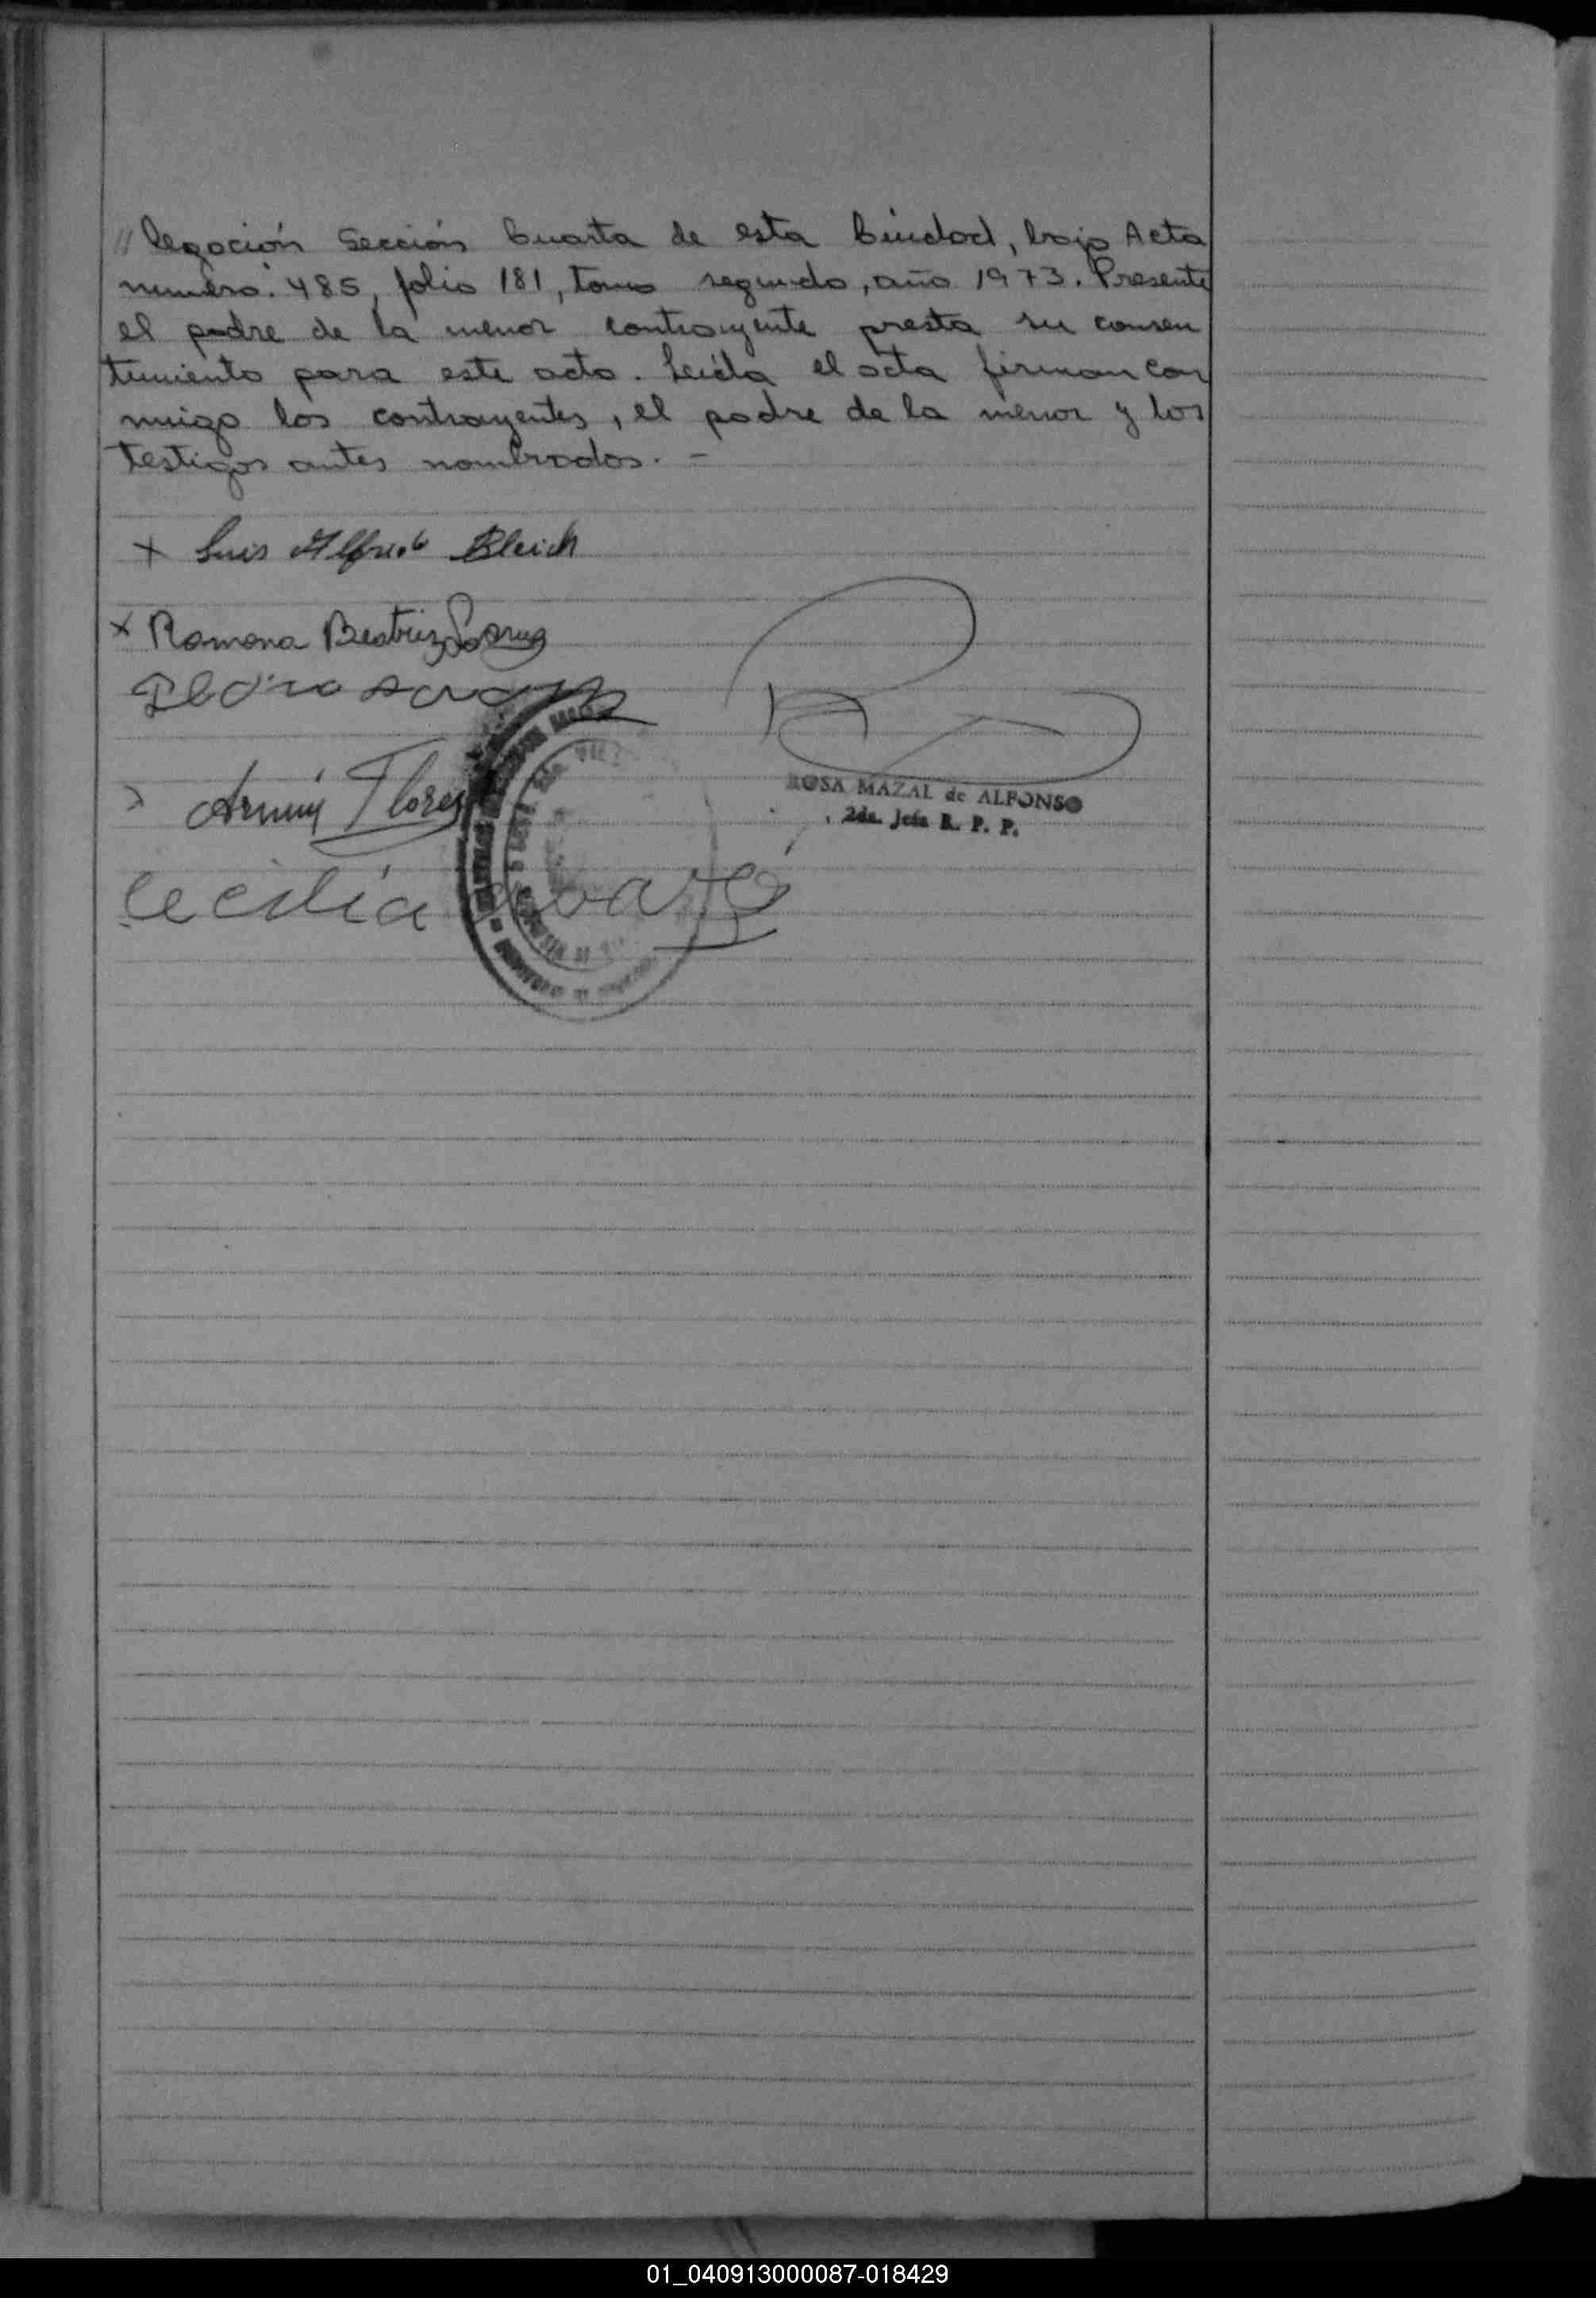 // legación Sección Cuarta de esta Ciudad, bajo Acta
número: 485, folio 181, tomo segundo, año 1973. Presente
el padre de la menor contrayente presta su consen
timiento para este acto. Leída el acta firman con
migo los contrayentes, el padre de la menor y los
testigos antes nombrados. -
x Luis Alfredo Bleich
x Ramona Beatriz
Pedro
Flores
ROSA MAZAL de ALFONSO
2da. Jefa R. P. P.
Cecilia
01_040913000087-018429